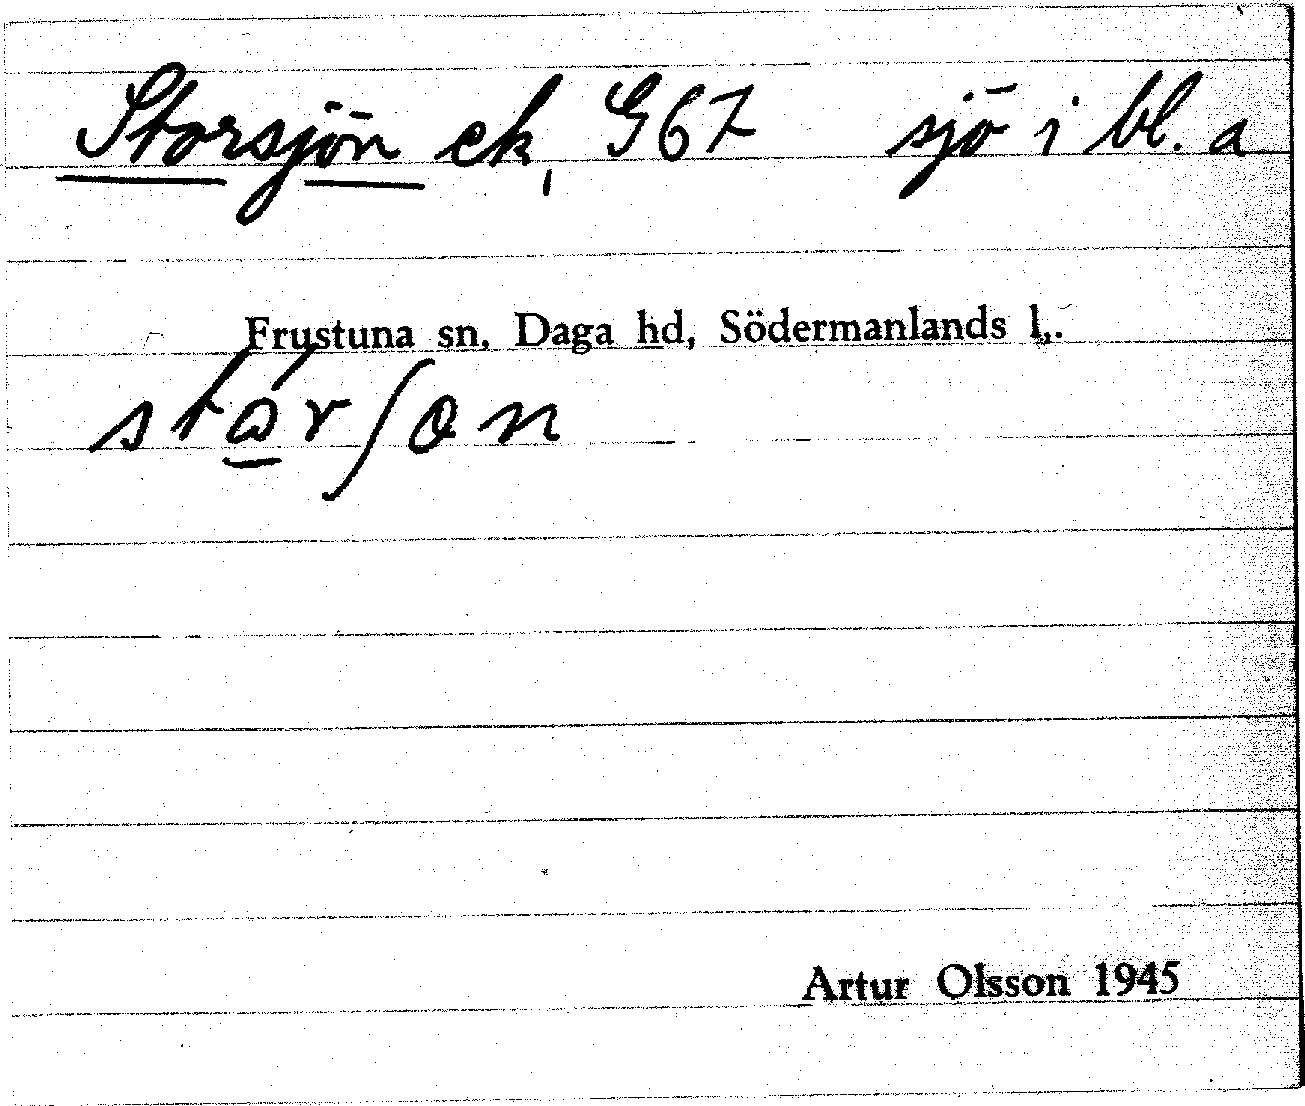 Storsjön ek, G67 sjö i bl. a
Frustuna sn, Daga hd, Södermanlands l.
stώ̲rʃɵn
Artur Olsson 1945